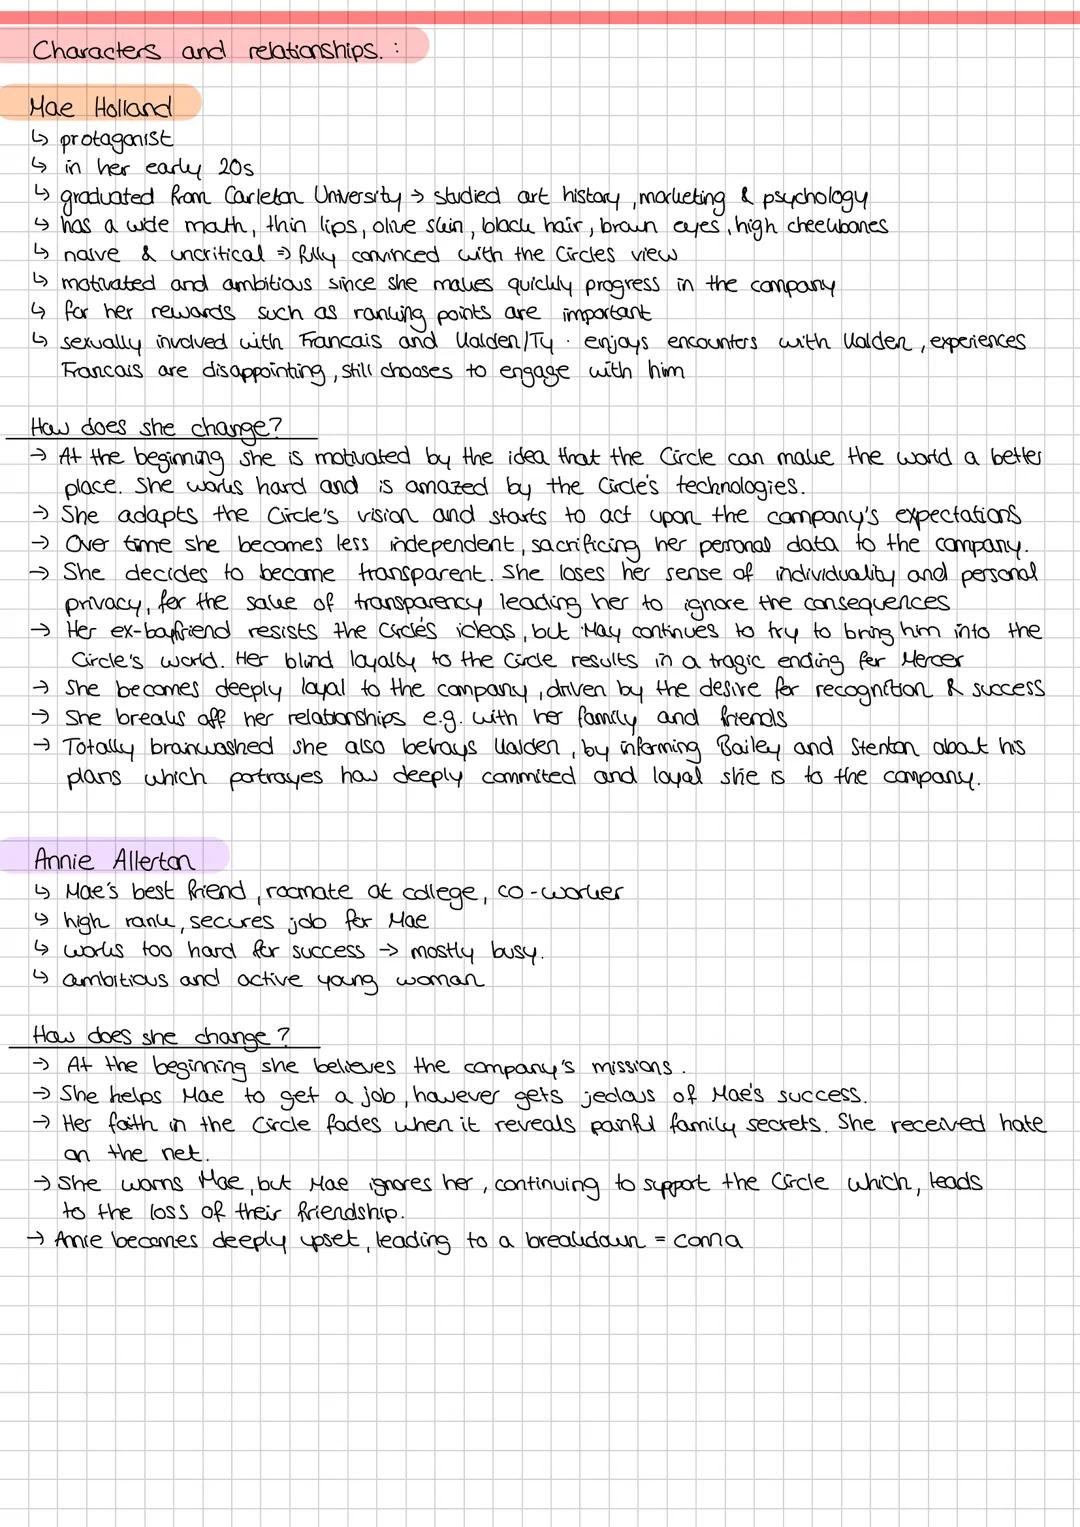 Characters and relationships. :
Mae Holland
↳ protagonist
↳ in her early 20s
↳ graduated from Carleton University → studied art history, marketing & psychology
↳ has a wide mouth, thin lips, olive skin, black hair, brown eyes, high cheekbones
↳ naive & uncritical ⇒ fully convinced with the Circles view
↳ motivated and ambitious since she makes quickly progress in the company
↳ for her rewards such as ranking points are important
↳ sexually involved with Francais and Kalden/Ty . enjoys encounters with Kalden, experiences
Francais are disappointing, still chooses to engage with him
How does she change?
→ At the beginning she is motivated by the idea that the Circle can make the world a better
place. She works hard and is amazed by the Circle's technologies.
→ She adapts the Circle's vision and starts to act upon the company's expectations
→ Over time she becomes less independent, sacrificing her personal data to the company.
→ She decides to become transparent. She loses her sense of individuality and personal
privacy, for the sake of transparency leading her to ignore the consequences
→ Her ex-boyfriend resists the Circle's ideas, but May continues to try to bring him into the
Circle's world. Her blind loyalty to the Circle results in a tragic ending for Mercer
→ She becomes deeply loyal to the company, driven by the desire for recognition & success
→ She breaks off her relationships e.g. with her family and friends
→ Totally brainwashed she also betrays Kalden, by informing Bailey and Stenton about his
plans which portrayes how deeply commited and loyal she is to the company.
Annie Allerton
↳ Mae's best friend, roomate at college, co-worker
↳ high rank, secures job for Mae
↳ works too hard for success → mostly busy.
↳ ambitious and active young woman
How does she change?
→ At the beginning she believes the company's missions.
→ She helps Mae to get a job, however gets jealous of Mae's success.
→ Her faith in the Circle fades when it reveals painful family secrets. She received hate
on the net.
→ She warns Mae, but Mae ignores her, continuing to support the Circle which, leads
to the loss of their friendship.
→ Annie becomes deeply upset, leading to a breakdown = coma